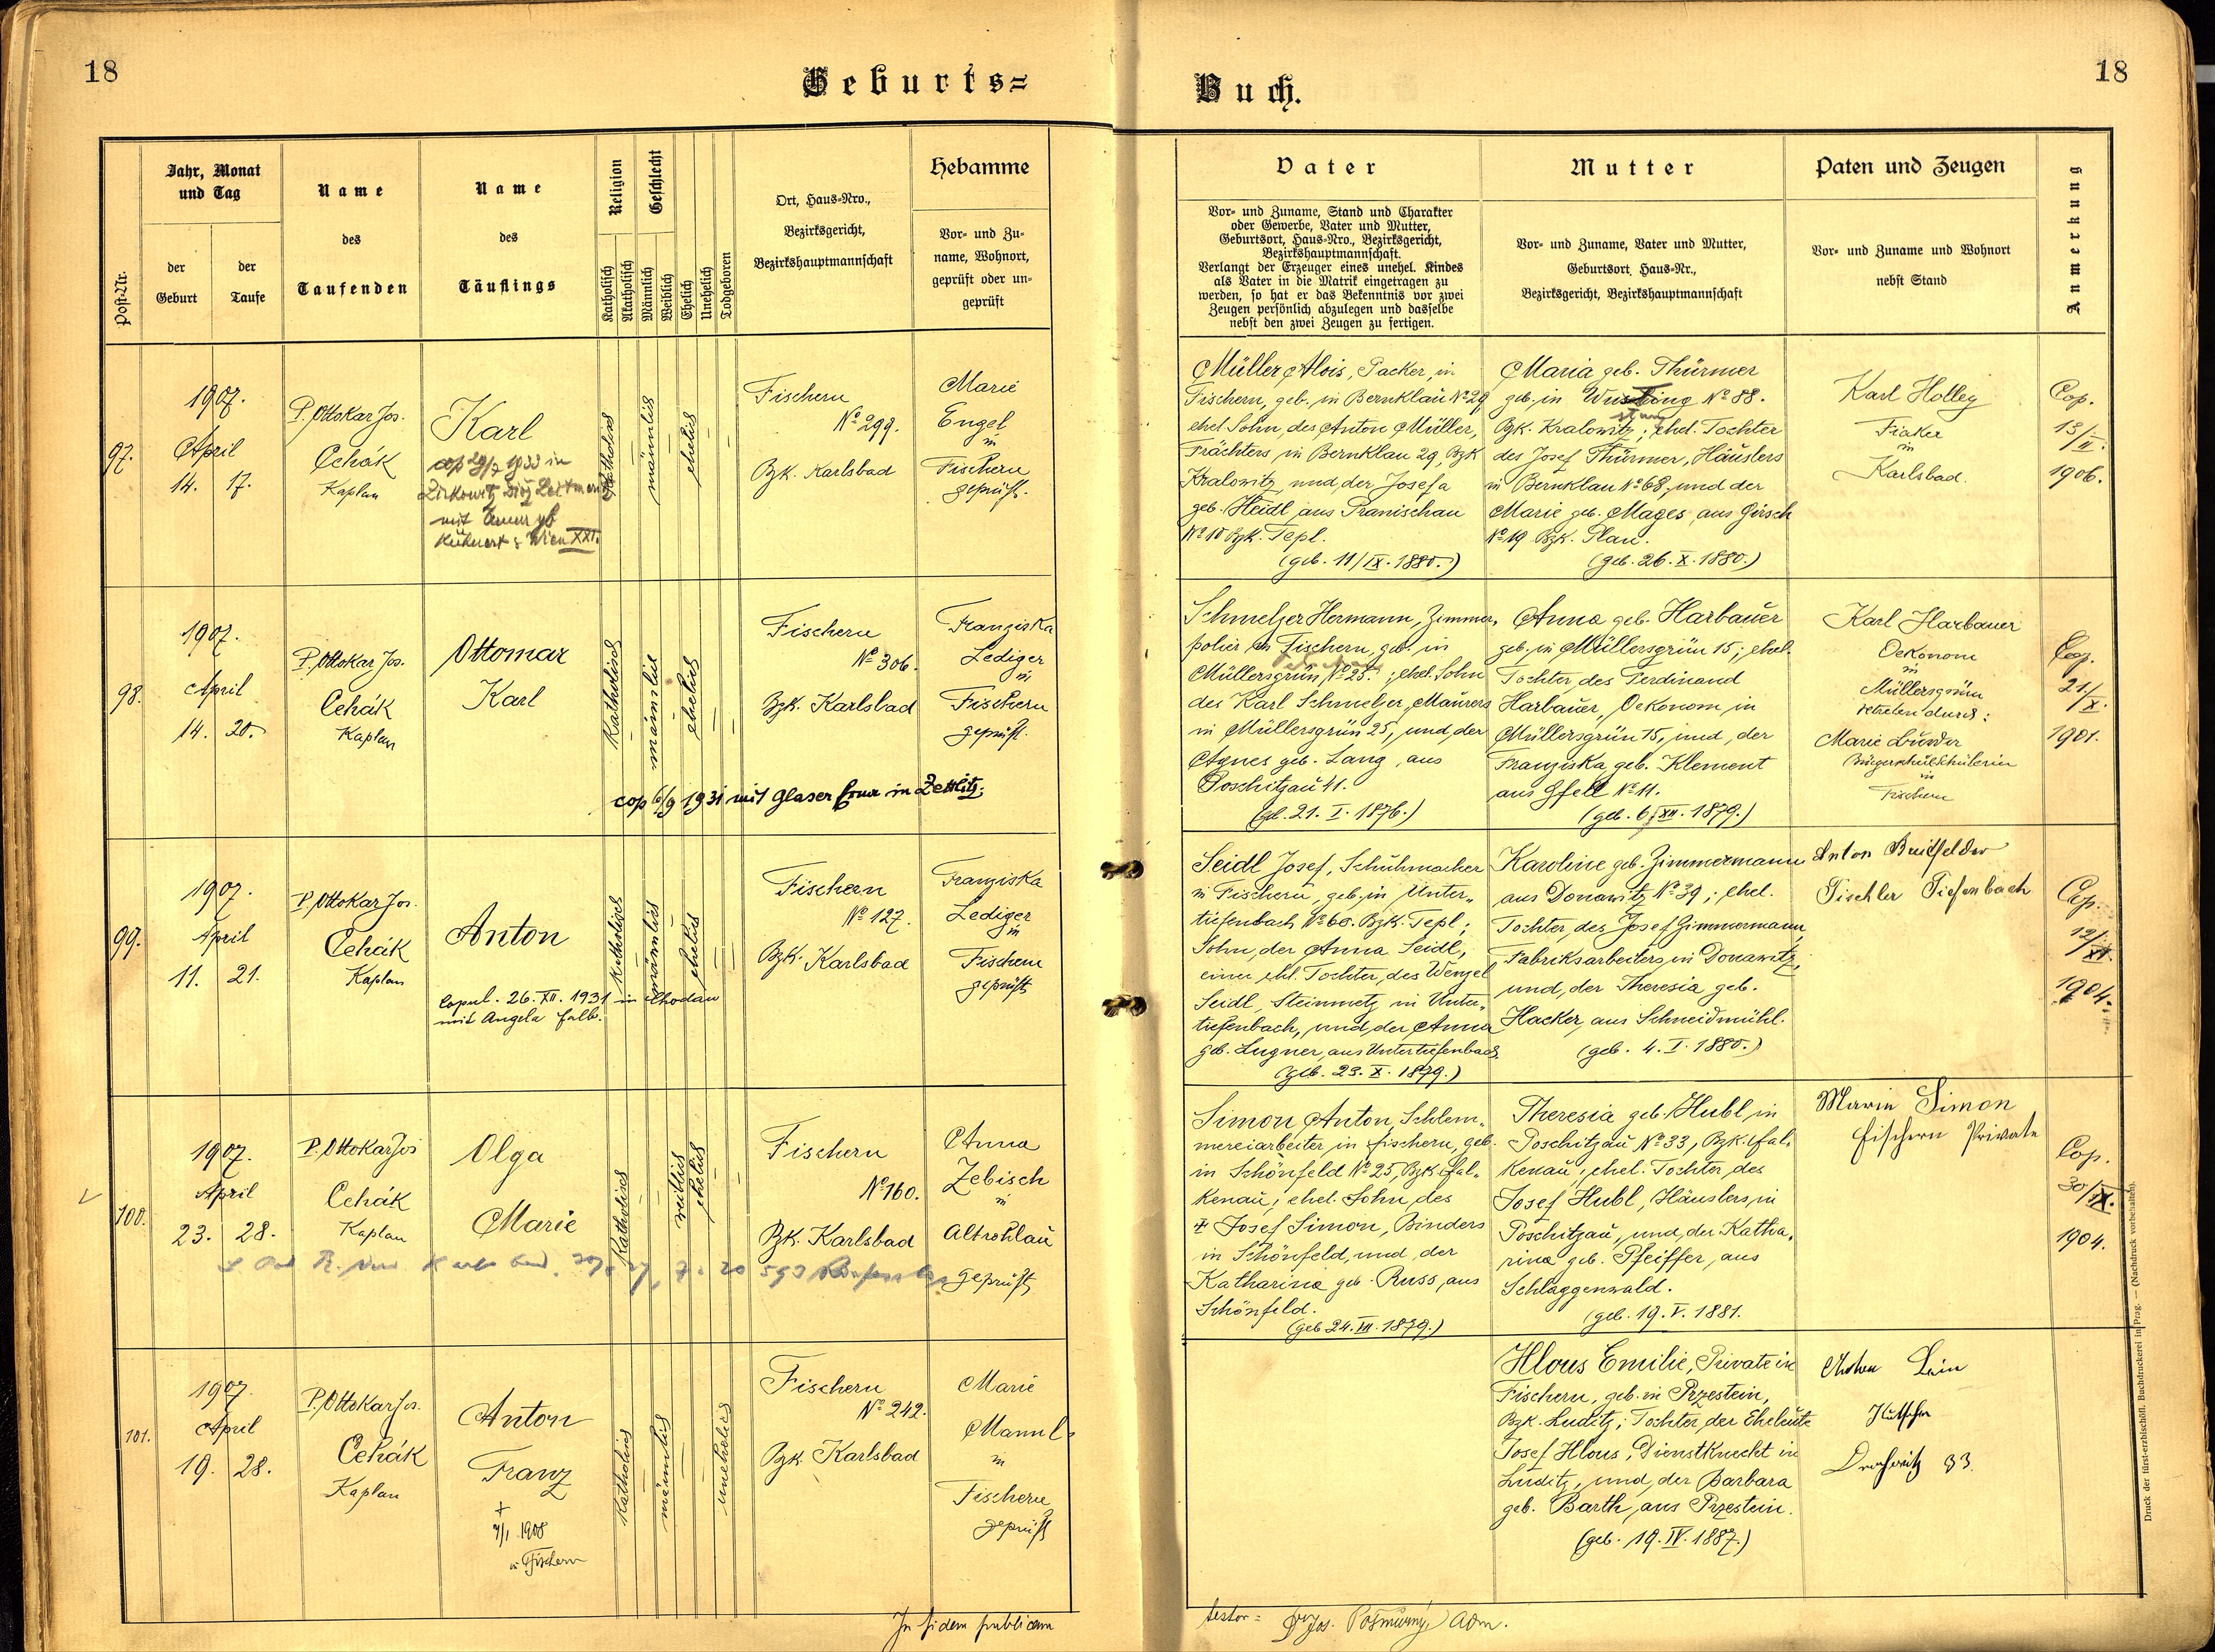 18
Geburts=
Post-Nr.
Jahr, Monat
und Tag
der
Geburt
der
Taufe
Name
des
Taufenden
Name
des
Täuflings
Religion
Katholisch
Akatholisch
Geschlecht
Männlich
Weiblich
Ehelich
Unehelich
Todgeboren
Ort, Haus-Nro.,
Bezirksgericht,
Bezirkshauptmannschaft
Hebamme
Vor- und Zu-
name, Wohnort,
geprüft oder un-
geprüft
97.
1907.
April
14. 17.
P. Ottokar Jos.
Čehák
Kaplan
Karl
mit
Wien XXI.
Katholisch
männlich
ehelich
Fischern
No 299.
Bzk. Karlsbad
Marie
Engel
in
Fischern
geprüft.
98.
1907.
April
14. 20.
P. Ottokar Jos.
Čehák
Kaplan
Ottomar
Karl
Katholisch
männlich
ehelich
Fischern
No 306.
Bzk. Karlsbad
Franziska
Lediger
in
Fischern
geprüft.
cop 6/9 1931 mit Glaser Erna in Zettlitz.
99.
1907.
April
11. 21.
P. Ottokar Jos.
Čehák
Kaplan
Anton
Copul. 26. XII. 1931 in Chodau
mit Angela Falb.
Katholisch
männlich
ehelich
Fischern
No 127.
Bzk. Karlsbad
Franziska
Lediger
in
Fischern
geprüft
100.
1907.
April
23. 28.
P. Ottokar Jos
Čehák
Kaplan
Olga
Marie
Katholisch
weiblich
ehelich
Fischern
No 160.
Bzk. Karlsbad
Anna
Zebisch
in
Altrohlau
geprüft
101.
1907.
April
19. 28.
P. Ottokar Jos.
Čehák
Kaplan
Anton
Franz
+
7/1 1908
in Fischern
Katholisch
männlich
unehelich
Fischern
No 242.
Bzk. Karlsbad
Marie
Mannl
in
Fischern
geprüft
In fidem publicam
Buch.
18
Vater
Vor- und Zuname, Stand und Charakter
oder Gewerbe, Vater und Mutter,
Geburtsort, Haus-Nro., Bezirksgericht,
Bezirkshauptmannschaft.
Verlangt der Erzeuger eines unehel. Kindes
als Vater in die Matrik eingetragen zu
werden, so hat er das Bekenntnis vor zwei
Zeugen persönlich abzulegen und dasselbe
nebst den zwei Zeugen zu fertigen.
Mutter
Vor- und Zuname, Vater und Mutter,
Geburtsort, Haus-Nr.,
Bezirksgericht, Bezirkshauptmannschaft
Paten und Zeugen
Vor- und Zuname und Wohnort
nebst Stand
Anmerkung
Müller Alois, Packer, in
Fischern, geb. in Bernklau No 29
ehel. Sohn, des Anton Müller,
Frächters, in Bernklau 29, Bzk
Kralowitz, und, der Josefa
geb. Heidl, aus Pranischau
No 10 Bzk. Tepl.
(geb. 11/IX. 1880.)
Maria geb. Thürmer
geb. in No 88.
Bzk. Kralowitz; ehel. Tochter
des Josef Thürmer, Häuslers
in Bernklau No 68, und der
Marie geb. Mages, aus Girsch
No 19 Bzk. Plan.
(geb. 26. X. 1880.)
Karl Holley
Fiaker
in
Karlsbad.
Cop.
13/II.
1906.
Schmelzer Hermann, Zimmer-
polier in Fischern, geb. in
Müllersgrün, No 25.; ehel. Sohn
des Karl Schmelzer, Maurers
in Müllersgrün 25, und, der
Agnes geb. Lang, aus
Poschitzau 41.
(geb. 21. I. 1876.)
Anna geb. Harbauer
geb. in Müllersgrün 15; ehel.
Tochter, des Ferdinand
Harbauer, Oekonom, in
Müllersgrün 15, und, der
Franziska geb. Klement
aus Gfell No 11.
(geb. 6/XII. 1879.)
Karl Harbauer
Oekonom
in
Müllersgrün
vetreten durch:
Marie
Bürgerschulschülerin
in
Fischern
Cop.
21/X.
1901.
Seidl Josef, Schuhmacher
in Fischern, geb. in Unter-
tiefenbach No 60. Bzk. Tepl;
Sohn, der Anna Seidl,
einer ehl. Tochter, des Wenzel
Seidl, Steinmetz, in Unter-
tiefenbach, und, der Anna
geb. Lugner, aus Untertiefenbach
(geb. 23. X. 1879.)
Karoline geb. Zimmermann
aus Donawitz No 39; ehel.
Tochter, des Josef Zimmermann,
Fabriksarbeiters, in Donawitz,
und, der Theresia geb.
Hacker, aus Schneidmühl.
(geb. 4. I. 1880.)
Anton Breitfelder
Tischler Tiefenbach
Cop.
12/XI.
1904.
Simon Anton, Schlem-
mereiarbeiter, in Fischern, geb.
in Schönfeld No 25, Bzk. Fal-
kenau; ehel. Sohn, des
+ Josef Simon, Binders
in Schönfeld, und, der
Katharina geb. Russ, aus
Schönfeld.
(geb 24. III. 1879.)
Theresia geb. Hubl, in
Poschitzau No 33, Bzk. Fal-
kenau; ehel. Tochter, des
Josef Hubl, Häuslers, in
Poschitzau, und, der Katha-
rina geb. Pfeiffer, aus
Schlaggenwald.
(geb. 19. V. 1881.
Marie Simon
Fischern Private
Cop.
30/IX.
1904.
Hlous Emilie, Private in
Fischern, geb. in Przestein,
Bzk. Luditz; Tochter, der Eheleute
Josef Hlous, Dienstknecht in
Luditz, und, der Barbara
geb. Barth, aus Przestein.
(geb. 19. IV. 1887.)
Anton
Kutscher
33.
testor = Jos. Adm.
Druck der fürst-erzbischöfl. Buchdruckerei in Prag. — (Nachdruck vorbehalten).